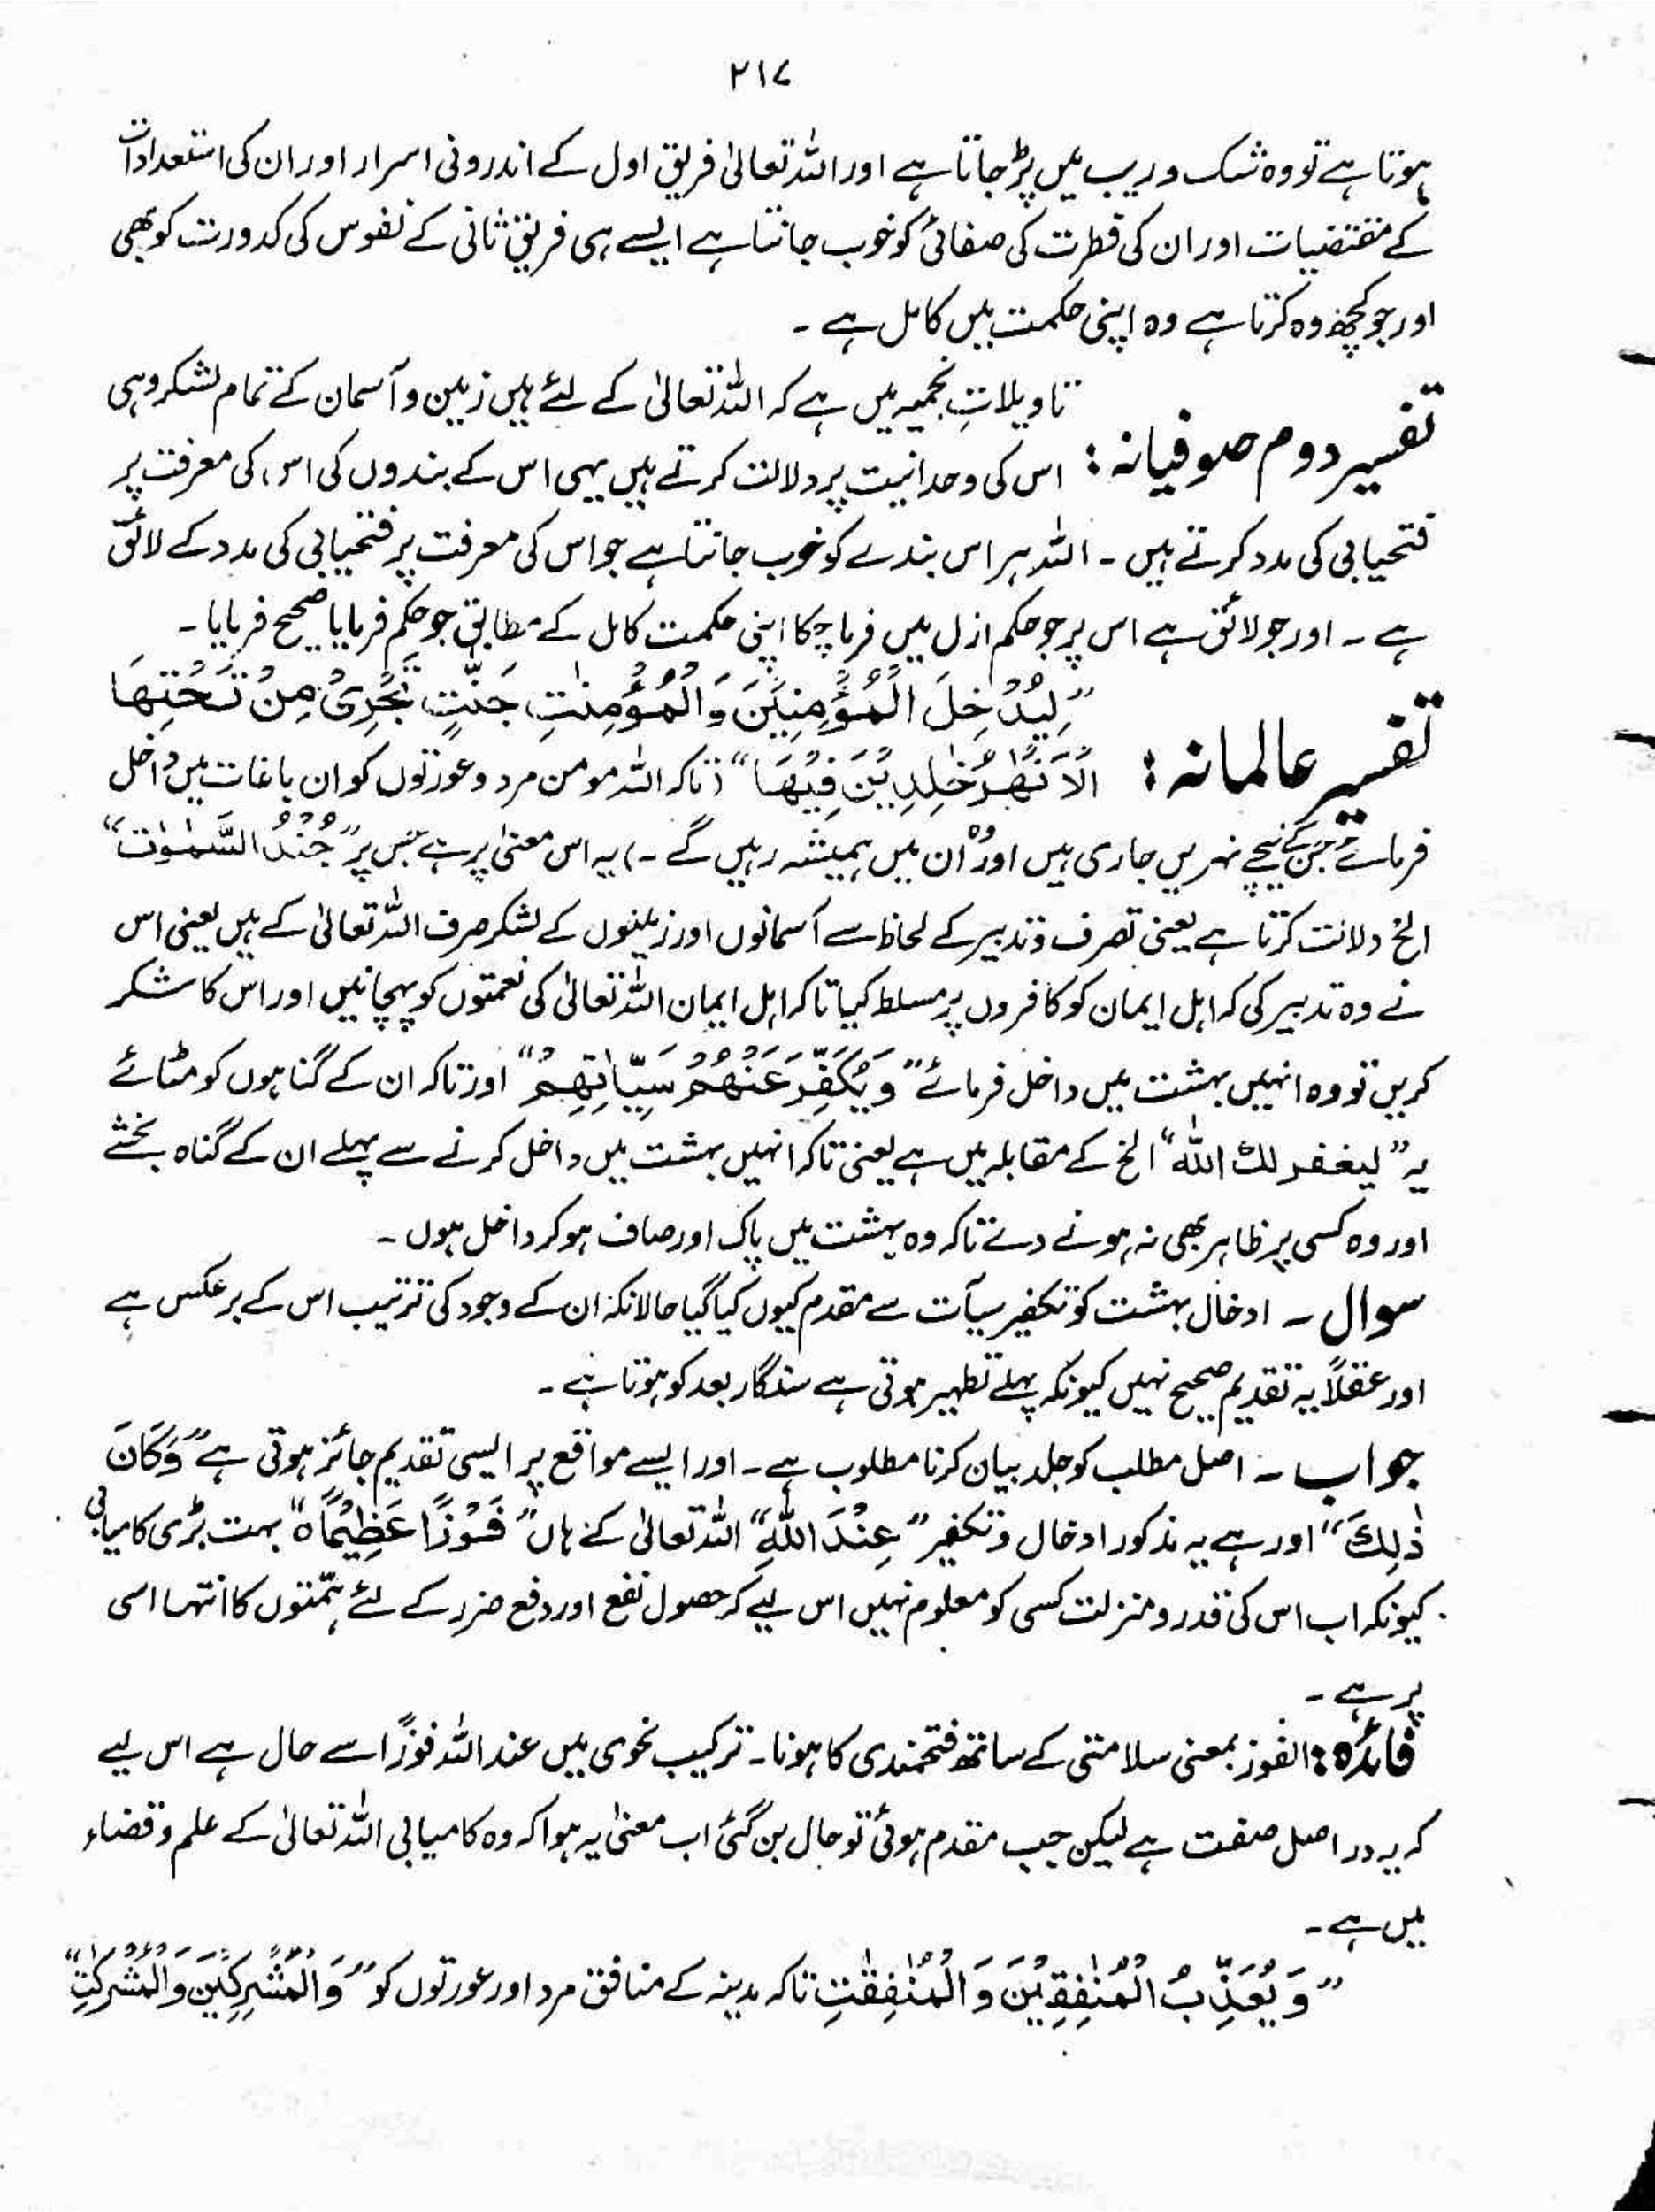 ۲۱۷
ہوتا ہے تو وہ شک و ریب میں پڑ جاتا ہے اور اللہ تعالیٰ فریق اول کے اندرونی اسرار اور ان کی استعدادات
کے مقتضیات اور ان کی فطرت کی صفائی کو خوب جانتا ہے ایسے ہی فریق ثانی کے نفوس کی کدورت کو بھی
اور جو کچھ وہ کرتا ہے وہ اپنی حکمت میں کامل ہے ۔
تفسیر دوم صوفیانہ : تاویلاتِ نجمیہ میں ہے کہ اللہ تعالیٰ کے لئے ہیں زمین و آسمان کے تمام لشکر وہی
اس کی وحدانیت پر دلالت کرتے ہیں یہی اس کے بندوں کی اس کی معرفت پر
فتحیابی کی مدد کرتے ہیں ۔ اللہ ہر اس بندے کو خوب جانتا ہے جو اس کی معرفت پر فتحیابی کی مدد کے لائق
ہے ۔ اور جو لائق ہے اس پر جو حکم ازل میں فرما چکا اپنی حکمت کامل کے مطابق جو حکم فرمایا صحیح فرمایا ۔
تفسیر عالمانہ : ”لِیُدْخِلَ الْمُؤْمِنِیْنَ وَالْمُؤْمِنٰتِ جَنّٰتٍ تَجْرِیْ مِنْ تَحْتِهَا
الْاَنْهٰرُ خٰلِدِیْنَ فِیْهَا“ (تاکہ اللہ مومن مرد و عورتوں کو ان باغات میں داخل
فرمائے جن کے نیچے نہریں جاری ہیں اور وہ ان میں ہمیشہ رہیں گے ۔) یہ اس معنیٰ پر ہے جس پر ”جُنْدُ السَّمٰوٰت“
الخ دلالت کرتا ہے یعنی تصرف و تدبیر کے لحاظ سے آسمانوں اور زمینوں کے لشکر صرف اللہ تعالیٰ کے ہیں یعنی اس
نے وہ تدبیر کی کہ اہل ایمان کو کافروں پر مسلط کیا تاکہ اہل ایمان اللہ تعالیٰ کی نعمتوں کو پہچانیں اور اس کا شکر
کریں تو وہ انہیں بہشت میں داخل فرمائے ”وَیُکَفِّرَ عَنْهُمْ سَیِّاٰتِهِمْ“ اور تاکہ ان کے گناہوں کو مٹائے
یہ ”لیغفر لك الله“ الخ کے مقابلہ میں ہے یعنی تاکہ انہیں بہشت میں داخل کرنے سے پہلے ان کے گناہ بخشے
اور وہ کسی پر ظاہر بھی نہ ہونے دے تاکہ وہ بہشت میں پاک اور صاف ہو کر داخل ہوں ۔
سوال ۔ ادخال بہشت کو تکفیر سیآت سے مقدم کیوں کیا گیا حالانکہ ان کے وجود کی ترتیب اس کے برعکس ہے
اور عقلاً یہ تقدیم صحیح نہیں کیونکہ پہلے تطہیر ہوتی ہے سنگار بعد کو ہوتا ہے ۔
جواب ۔ اصل مطلب کو جلد بیان کرنا مطلوب ہے ۔ اور ایسے مواقع پر ایسی تقدیم جائز ہوتی ہے ”وَکَانَ
ذٰلِكَ“ اور ہے یہ مذکور ادخال و تکفیر ”عِنْدَ اللهِ“ اللہ تعالیٰ کے ہاں ”فَوْزًا عَظِیْمًاہ“ بہت بڑی کامیابی
کیونکہ اب اس کی قدر و منزلت کسی کو معلوم نہیں اس لیے کہ حصول نفع اور دفع ضرر کے لئے ہمّتوں کا انتہا اسی
پر ہے ۔
فائدہ : الفوز بمعنی سلامتی کے ساتھ فتحمندی کا ہونا ۔ ترکیب نحوی میں عند اللہ فوزًا سے حال ہے اس لیے
کہ یہ در اصل صفت ہے لیکن جب مقدم ہوئی تو حال بن گئی اب معنیٰ یہ ہوا کہ وہ کامیابی اللہ تعالیٰ کے علم و قضاء
میں ہے ۔
”وَیُعَذِّبَ الْمُنٰفِقِیْنَ وَالْمُنٰفِقٰتِ تاکہ مدینہ کے منافق مرد اور عورتوں کو ”وَالْمُشْرِكِیْنَ وَالْمُشْرِكٰتِ“